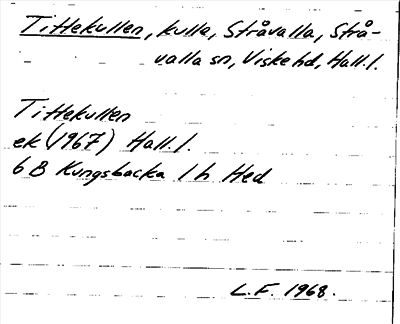 Tittekullen, kulle, Stråvalla, Strå-
valla sn, Viske hd, Hall. l.
Tittekullen
ek (1967) Hall. l.
6 B Kungsbacka 1 h Hed
L.F. 1968.